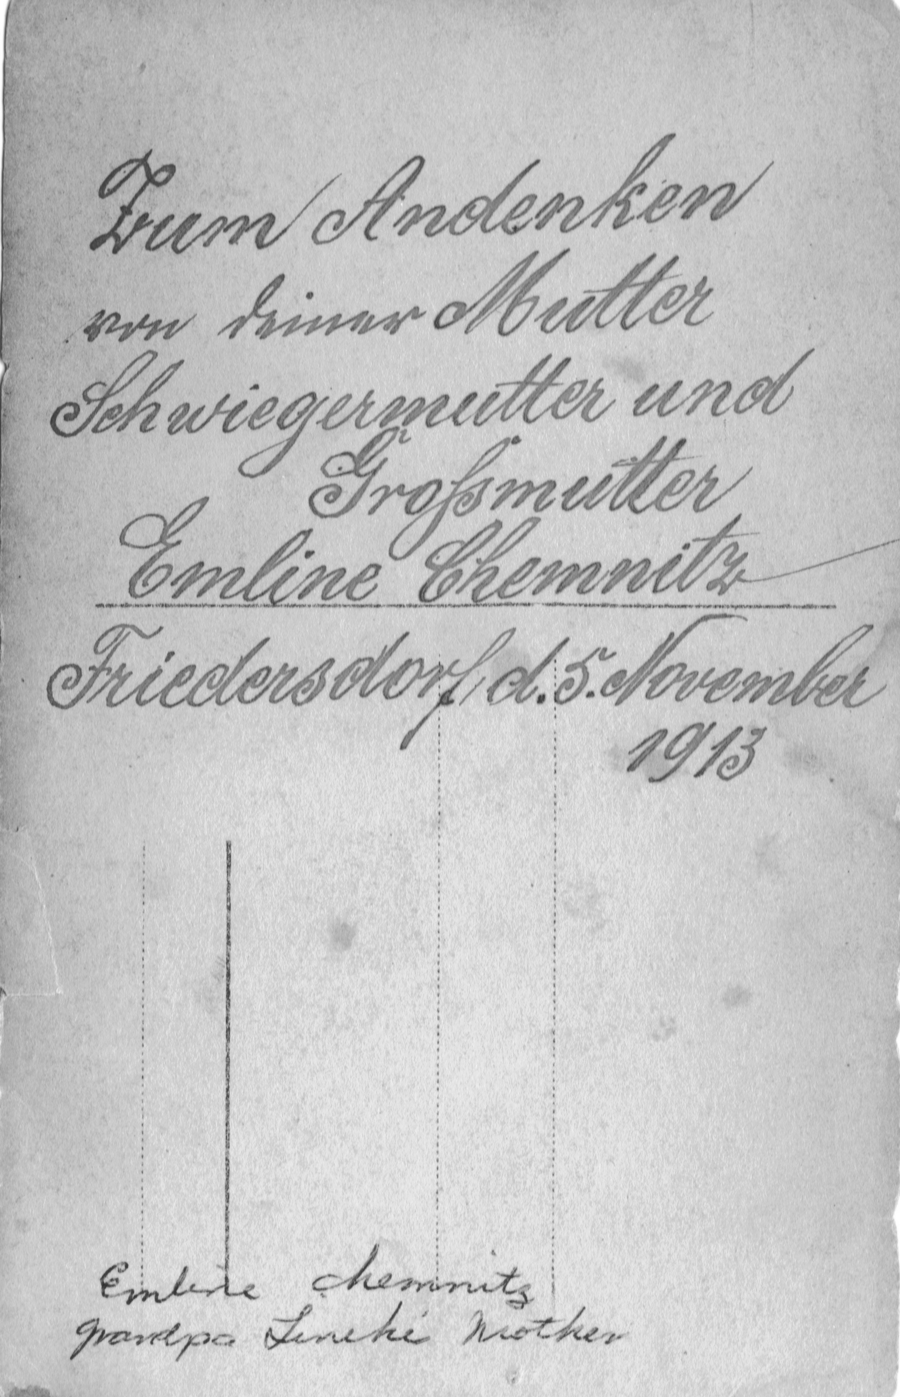 Zum Andenken
von deiner Mutter
Schwiegermutter und
Großmutter
Emline Chemnitz
Friedersdorf, d. 5. November
1913
Emline Chemnitz
Grandpa Mother